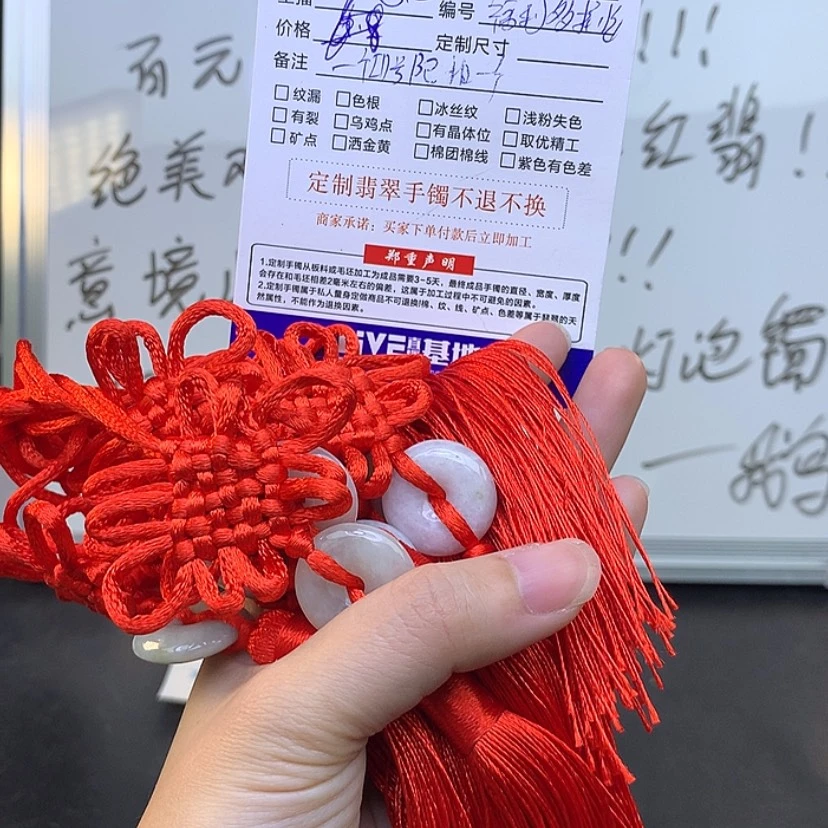 编号
价格
定制尺寸
备注
□纹漏 □色根 □冰丝纹 □浅粉失色
□有裂 □乌鸡点 □有晶体位 □取优精工
□矿点 □洒金黄 □棉团棉线 □紫色有色差
定制翡翠手镯不退不换
商家承诺：买家下单付款后立即加工
郑重声明
1.定制手镯从板料或毛坯加工为成品需要3~5天，最终成品手镯的直径、宽度、厚度
会存在和毛坯相差2毫米左右的偏差，这属于加工过程中不可避免的因素。
2.定制手镯属于私人量身定做商品不可退换!棉、纹、线、矿点、色差等属于翡翠的天
然属性，不能作为退换因素。
基地
百元
!!!
绝美
红翡!
意境
!!
灯泡镯
一